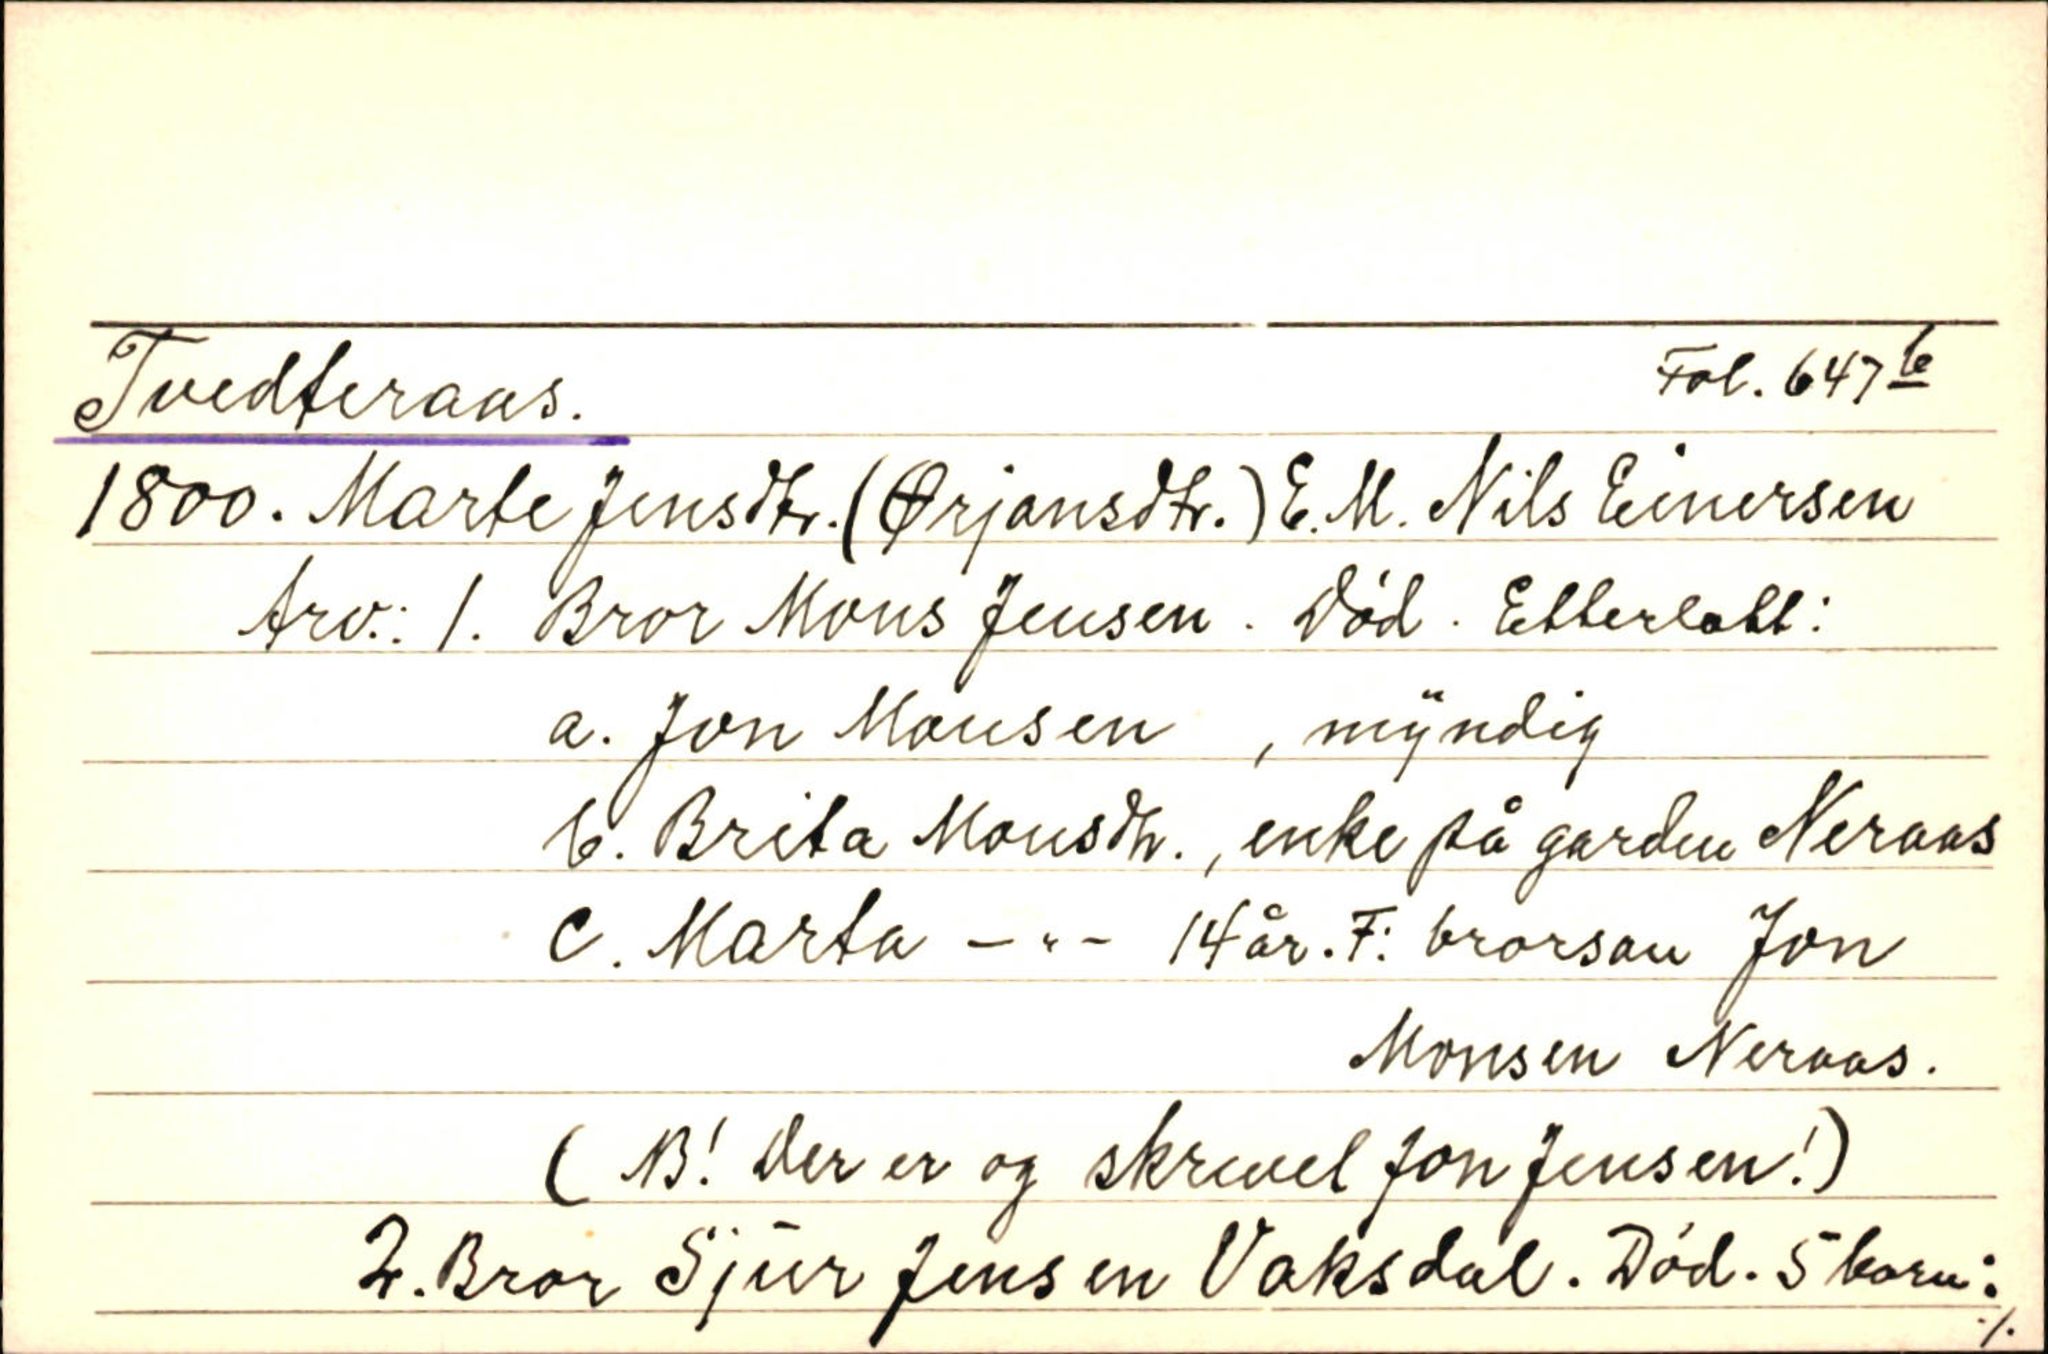 Tvedteraas. Fol. 647 b
1800. Marte Jensdtr. (Ørjansdtr.) E. M. Nils Einersen
Arv.: 1. Bror Mons Jensen. Död. Etterlatt:
a. Jon Monsen , mÿndig
b. Brita Monsdtr., enke på garden Neraas
c. Marta – " – 14 år. F: brorson Jon
Monsen Neraas.
( NB! Der er og skrevel Jon Jensen!)
2. Bror Sjur Jensen Vaksdal. Död. 5 born:
./.